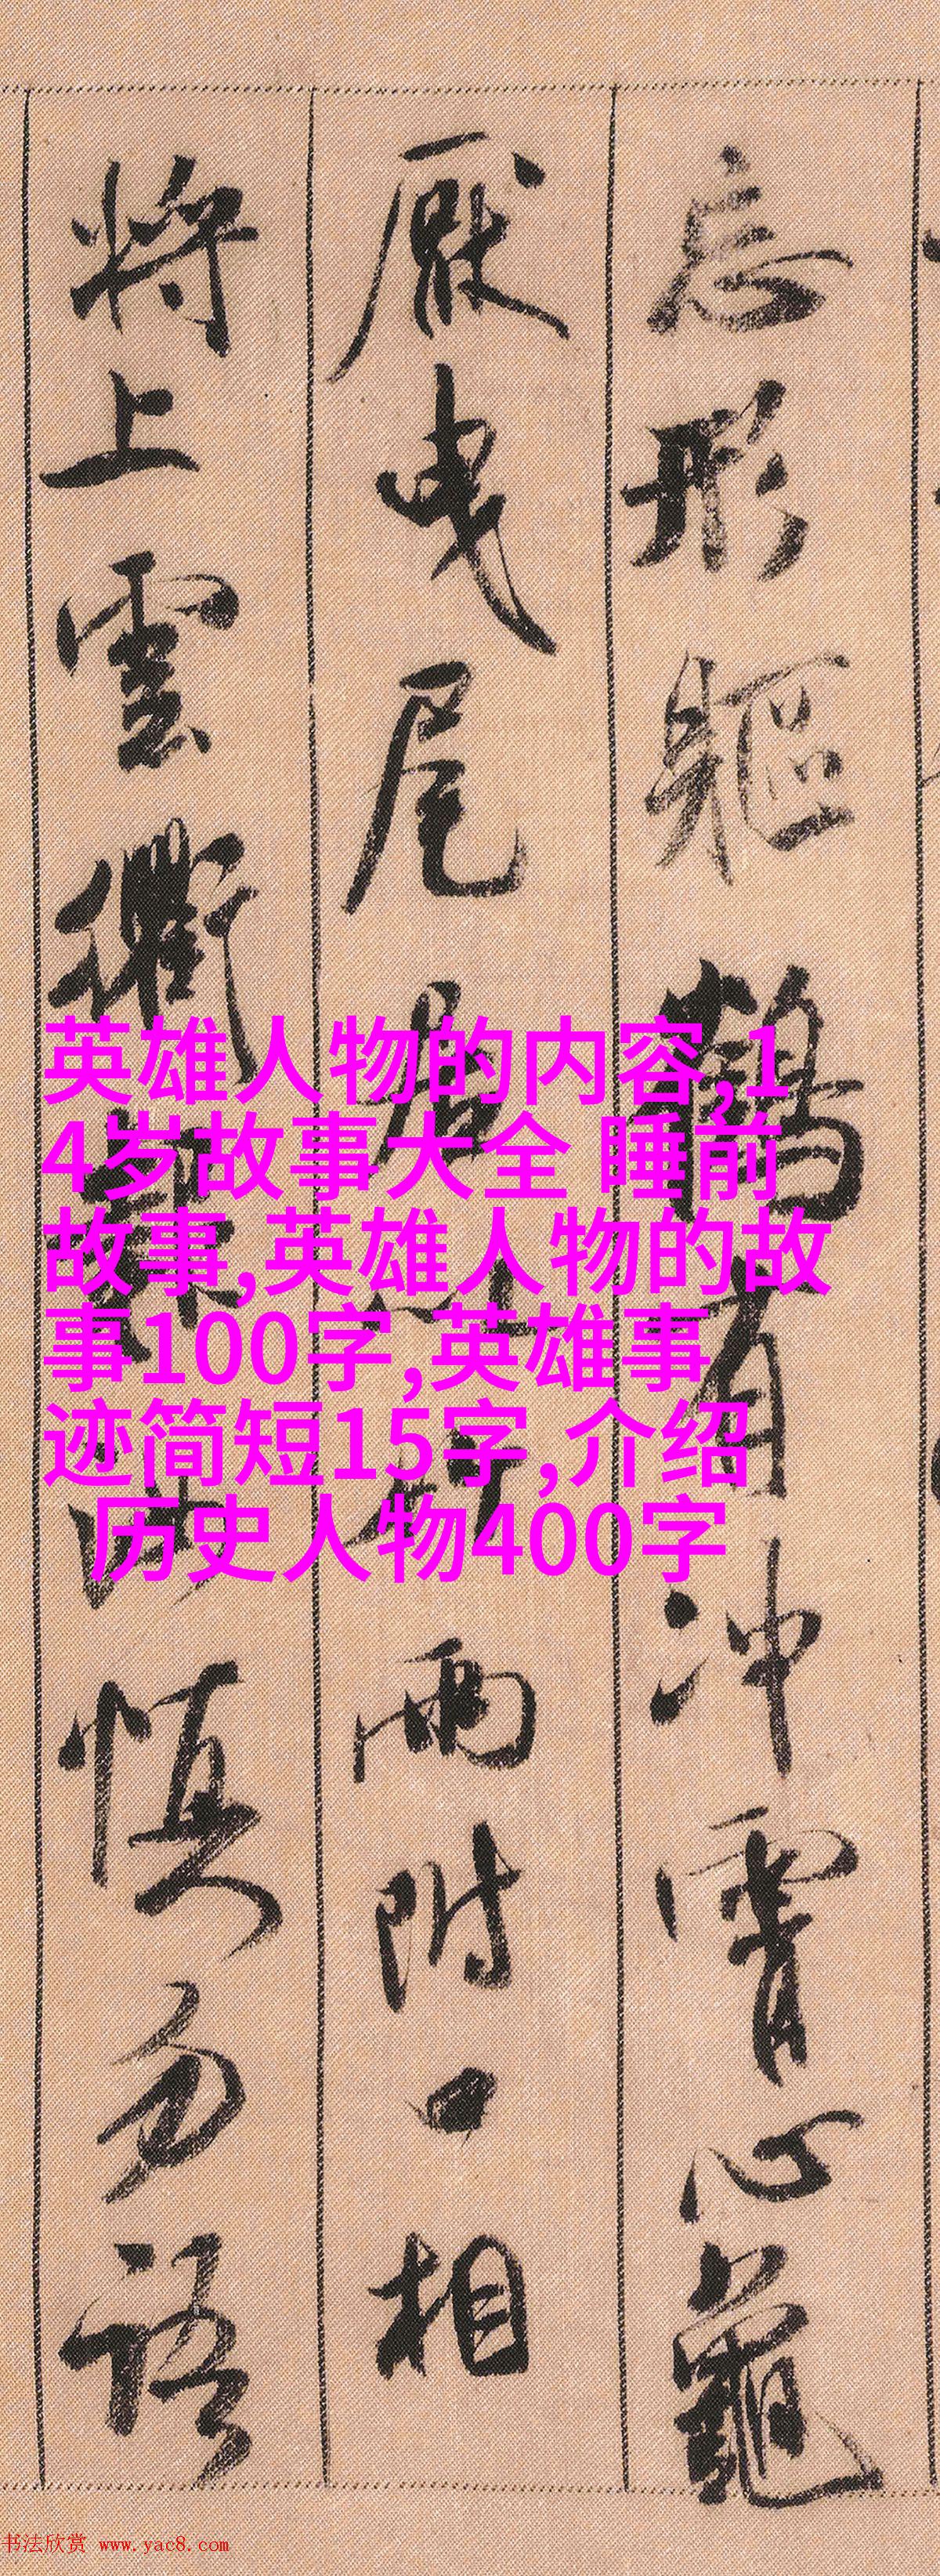 忘形軀鶴有沖霄心龜
厭曳尾居以竹兩附口相
將上雲衢報汝慎勿語
英雄人物的内容,1
4岁故事大全 睡前
故事,英雄人物的故
事100字,英雄事
迹简短15字,介绍
历史人物400字
书法欣赏 www.yac8.com